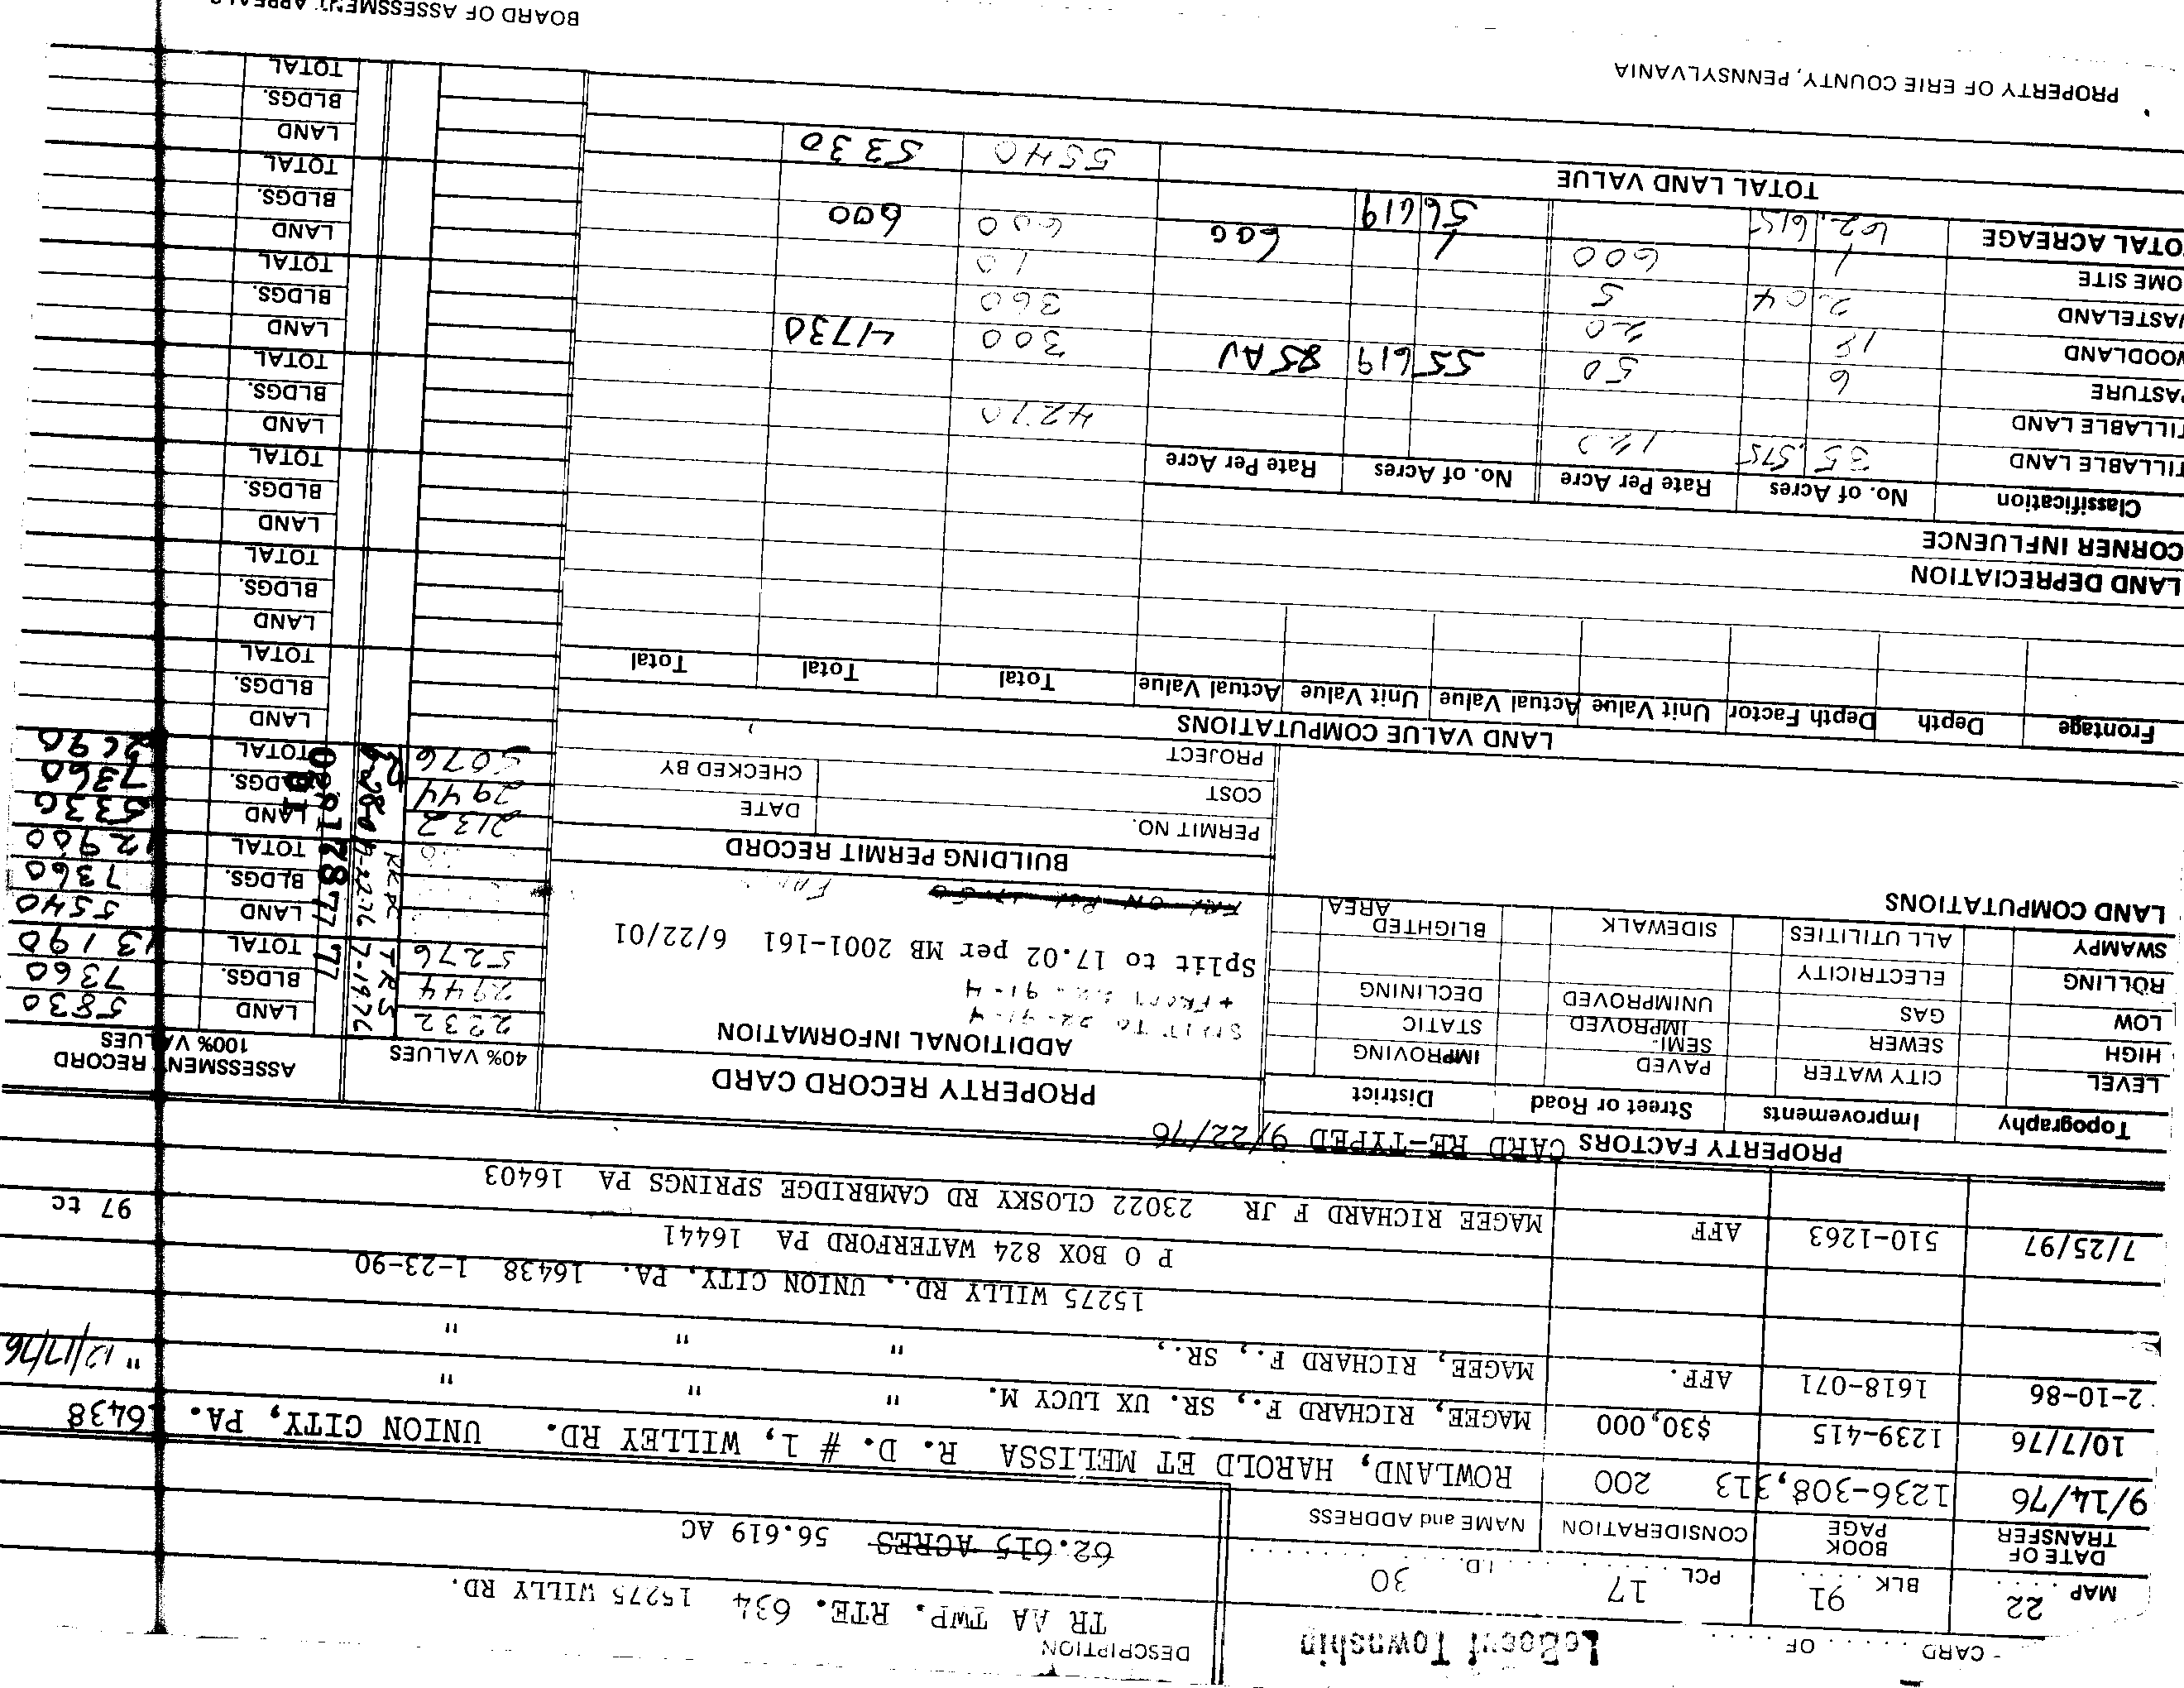 CARD ...... OF ......
LeBoeuf Township
DESCRIPTION
TR AA TWP. RTE. 634 15275 WILLY RD.
MAP 22 BLK 91 PCL 17 I.D. 30
62.615 ACRES 56.619 AC
DATE OF TRANSFER BOOK PAGE CONSIDERATION NAME and ADDRESS
9/14/76 1236-308,313 200 ROWLAND, HAROLD ET MELISSA R. D. # 1, WILLEY RD. UNION CITY, PA. 16438
10/7/76 1239-415 $30,000 MAGEE, RICHARD F., SR. UX LUCY M. " " " " 12/17/76
2-10-86 1618-071 AFF. MAGEE, RICHARD F., SR., " " "
15275 WILLY RD., UNION CITY, PA. 16438 1-23-90
P O BOX 824 WATERFORD PA 16441
7/25/97 510-1263 AFF MAGEE RICHARD F JR 23022 CLOSKY RD CAMBRIDGE SPRINGS PA 16403 97 tc
PROPERTY FACTORS CARD RE-TYPED 9/22/76
PROPERTY RECORD CARD
Topography Improvements Street or Road District
LEVEL CITY WATER PAVED IMPROVING
HIGH SEWER SEMI-IMPROVED STATIC
LOW GAS UNIMPROVED DECLINING
ROLLING ELECTRICITY
SWAMPY ALL UTILITIES SIDEWALK BLIGHTED AREA
LAND COMPUTATIONS
ADDITIONAL INFORMATION
SPLIT TO 22-91-4
+ FROM 22-91-4
Split to 17.02 per MB 2001-161 6/22/01
BUILDING PERMIT RECORD
PERMIT NO. DATE
COST CHECKED BY
PROJECT
40% VALUES
ASSESSMENT RECORD 100% VALUES
2232 TRS 7-19-76 77 LAND 5830
2944 BLDGS. 7360
5276 TOTAL 13190
LAND 5540
BLDGS. 7360
TOTAL 12900
2132 LAND 5330
2944 BLDGS. 7360
5076 TOTAL 2690
LAND VALUE COMPUTATIONS
Frontage Depth Depth Factor Unit Value Actual Value Unit Value Actual Value Total Total Total
LAND DEPRECIATION
CORNER INFLUENCE
Classification No. of Acres Rate Per Acre No. of Acres Rate Per Acre
TILLABLE LAND 35.575 120 4270
TILLABLE LAND
PASTURE 6 50 55 619 85 AV 300 4730
WOODLAND 18 20 360
WASTELAND 2.04 5 10
HOME SITE 1 600 1 600 600 600
TOTAL ACREAGE 62.615 56 619
TOTAL LAND VALUE 5540 5330
LAND
BLDGS.
TOTAL
LAND
BLDGS.
TOTAL
LAND
BLDGS.
TOTAL
LAND
BLDGS.
TOTAL
LAND
BLDGS.
TOTAL
LAND
BLDGS.
TOTAL
LAND
BLDGS.
TOTAL
PROPERTY OF ERIE COUNTY, PENNSYLVANIA
BOARD OF ASSESSMENT APPEALS